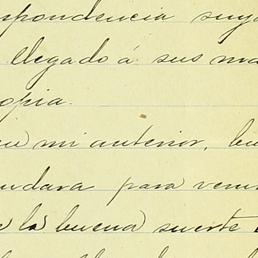 spondencia suya
llegado á sus ma
opia.
en mi anterior, bu
udara para veni
e la buena suerte